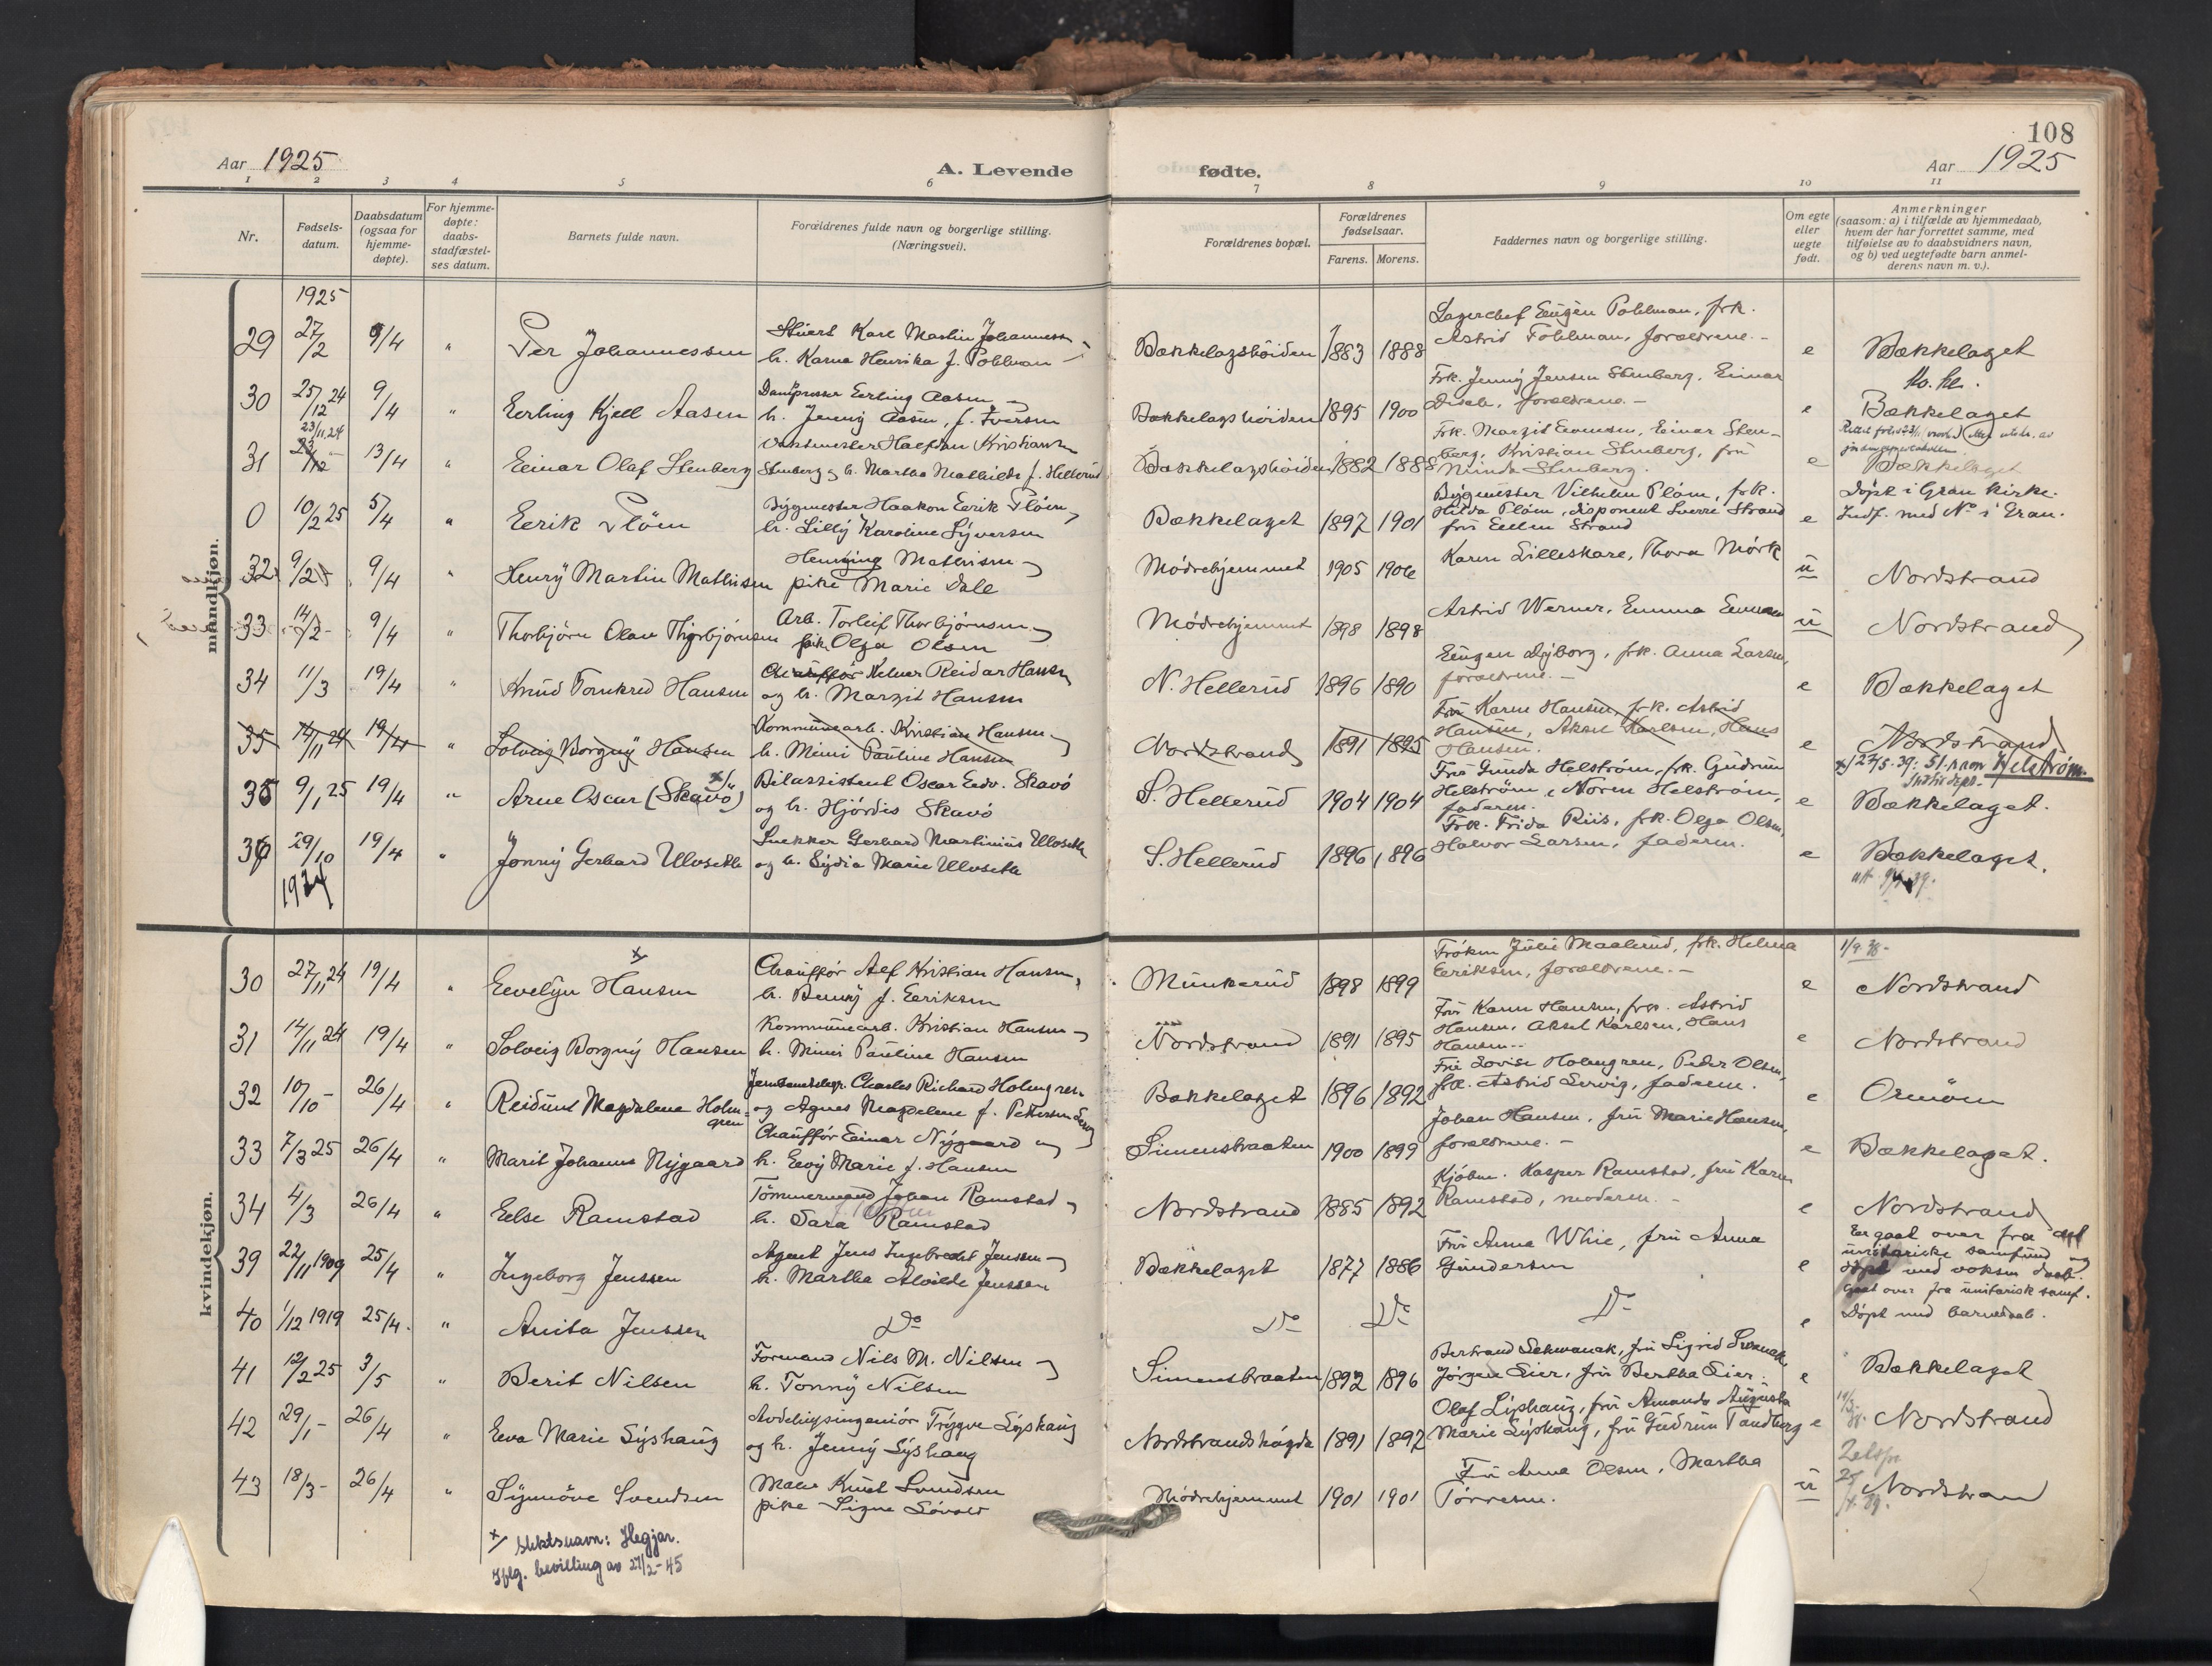 108
Aar 1925
A. Levende
fødte.
Aar 1925
1 2 3 4 5 6 7 8 9 10 11
Nr.
Fødsels-
datum.
Daabsdatum
(ogsaa for
hjemme-
døpte).
For hjemme-
døpte:
daabs-
stadfæstel-
ses datum.
Barnets fulde navn.
Forældrenes fulde navn og borgerlige stilling.
(Næringsvei).
Forældrenes bopæl.
Forældrenes
fødselsaar.
Farens. Morens.
Faddernes navn og borgerlige stilling.
Om egte
eller
uegte
født.
Anmerkninger
(saasom: a) i tilfælde av hjemmedaab,
hvem der har forrettet samme, med
tilføielse av to daabsvidners navn,
og b) ved uegtefødte barn anmel-
derens navn m. v.).
mandkjøn.
1925
29 27/2 9/4 " Per Johannessen
Stuert Karl Martin Johannessen
h. Karna Henrika f. Pohlman
Bækkelagshöiden 1883 1888
Lagerchef Eugen Pohlman, frk.
Astrid Pohlman, forældrene. -
e Bækkelaget
30 25/12 24 9/4 " Erling Kjell Aasen
Erling Aasen
h. Jenny Aasen, f. Iversen
Bækkelagshöiden 1895 1900
Frk. Jenny Jensen Stenberg, Einar
forældrene. -
e Bækkelaget
31 23/11 24 13/4 " Einar Olaf Stenberg
Halfdan Kristiansen
Stenberg og h. Martha Mathilde f. Hellerud
Bækkelagshöiden 1882 1888
Frk. Margit Evensen, Einar Sten-
berg, Kristian Stenberg, frü
Minda Stenberg.
e Bækkelaget
0 10/2 25 5/4 " Erik Plöm
Bygmester Haakon Erik Plöm
h. Lilly Karoline Syversen
Bækkelaget 1897 1901
Bygmester Vilhelm Plöm, frk.
Hilda Plöm, disponent Sverre Strand
frü Ellen Strand
e Döpt i Gran kirke.
Indf. med No i Gran.
32 9/2 25 9/4 " Henry Martin Mathisen
Henning Mathisen
pike Marie Dale
Mödrehjemmet 1905 1906
Karen Lilleskare, Thora Mörk
ü Nordstrand
33 14/2 - 9/4 " Thorbjörn Olav Thorbjörnsen
Arb. Torleif Thorbjörnsen
pike Olga Olsen
Mödrehjemmet 1898 1898
Astrid Werner, Emma Evensen
ü Nordstrand
34 11/3 19/4 " Knud Tornkred Hansen
Chauffør Kelner Reidar Hansen
og h. Margit Hansen
N. Hellerud 1896 1890
Eugen Nyborg, frk. Anna Larsen,
forældrene. -
e Bækkelaget
35 14/11 24 19/4 " Solveig Borgny Hansen
Kommunearb. Kristian Hansen
h. Mimi Pauline Hansen
Nordstrand 1891 1895
Frü Karen Hansen, frk. Astrid
Hansen, Aksel Karlsen, Hans
Hansen.
e Nordstrand
35 9/1 25 19/4 " Arne Oscar (Skavö) x/
Bilassistent Oscar Edv. Skavö
og h. Hjördis Skavö
S. Hellerud 1904 1904
Frü Gunda Helström, frk. Gudrun
Helström, Noren Helström,
faderen.
x/ 27/5. 39: sl.navn Helstrøm.
Justisdept.
e Bækkelaget.
36 29/10 1924 19/4 " Jonny Gerhard Ulvseth
Snekker Gerhard Martinius Ulvseth
og h. Lydia Marie Ulvseth
S. Hellerud 1896 1896
Frk. Frida Riis, frk. Olga Olsen,
Halvor Larsen, faderen.
e Bækkelaget.
kvindekjøn.
30 27/11 24 19/4 " Evelyn Hansen x/
Chauffør Alf Kristian Hansen,
h. Benny f. Eriksen
Munkerud 1898 1899
Fröken Julie Maalerud, frk. Helma
Eriksen, forældrene. -
e Nordstrand
31 14/11 24 19/4 " Solveig Borgny Hansen
Kommunearb. Kristian Hansen
h. Mimi Pauline Hansen
Nordstrand 1891 1895
Frü Karen Hansen, frk. Astrid
Hansen, Aksel Karlsen, Hans
Hansen.
e Nordstrand
32 10/10 - 26/4 " Reidunt Magdalene Holm-
gren
Charles Richard Holmgren
og Agnes Magdalene f. Pettersen
Bækkelaget 1896 1892
Frü Lovise Holmgren, Peder Olsen,
frk. Astrid Servig, faderen.
e Ormöen
33 7/3 25 26/4 " Marit Johanne Nygaard
Chauffør Einar Nygaard og
h. Evy Marie f. Hansen
Simenstraaten 1900 1899
Johan Hansen, frü Marie Hansen,
forældrene. -
e Bækkelaget.
34 4/3 26/4 " Else Ramstad
Tömmermand Johan Ramstad
h. Sara Ramstad
Nordstrand 1885 1892
Kjöbm. Kasper Ramstad, frü Karen
Ramstad, moderen. -
e Nordstrand
39 22/11 1909 25/4 " Ingeborg Jenssen
Agent Jens Ingebredt Jenssen
h. Martha Alvilde Jenssen
Bækkelaget 1877 1886
Frü Anna Whie, frü Anna
Gundersen
e Er gaat over fra det
unitariske samfund og
döpt med voksen daab.
40 1/12 1919 25/4. " Anita Jenssen
Do
Do Do Do
e Gaat over fra unitarisk samf.
Döpt med barnedaab.
41 12/2 25 3/5 " Berit Nilsen
Formand Nils M. Nilsen
h. Tonny Nilsen
Simenstraaten 1892 1896
Bertrand Schwanck, frü Sigrid Svanack,
Jörgen Lier, frü Bertha Lier.
e Bækkelaget
42 29/1 - 26/4 " Eva Marie Syshaug
Avdelingsingeniör Trygve Syshaug
og h. Jenny Syshaug
Nordstrandshögda 1891 1897
Olaf Lyshaug, frü Amanda Augusta
Marie Syshaug, frü Gudrun Tandberg
e Nordstrand
43 18/3 - 26/4 " Synnöve Svendsen
Maler Knut Svendsen
pike Signe Sövold
Mödrehjemmet 1901 1901
Frü Anna Olsen, Martha
Torresen.
ü Nordstrand
x/ Slektsnavn: Hegjar.
Iflg. bevilling av 27/2-45